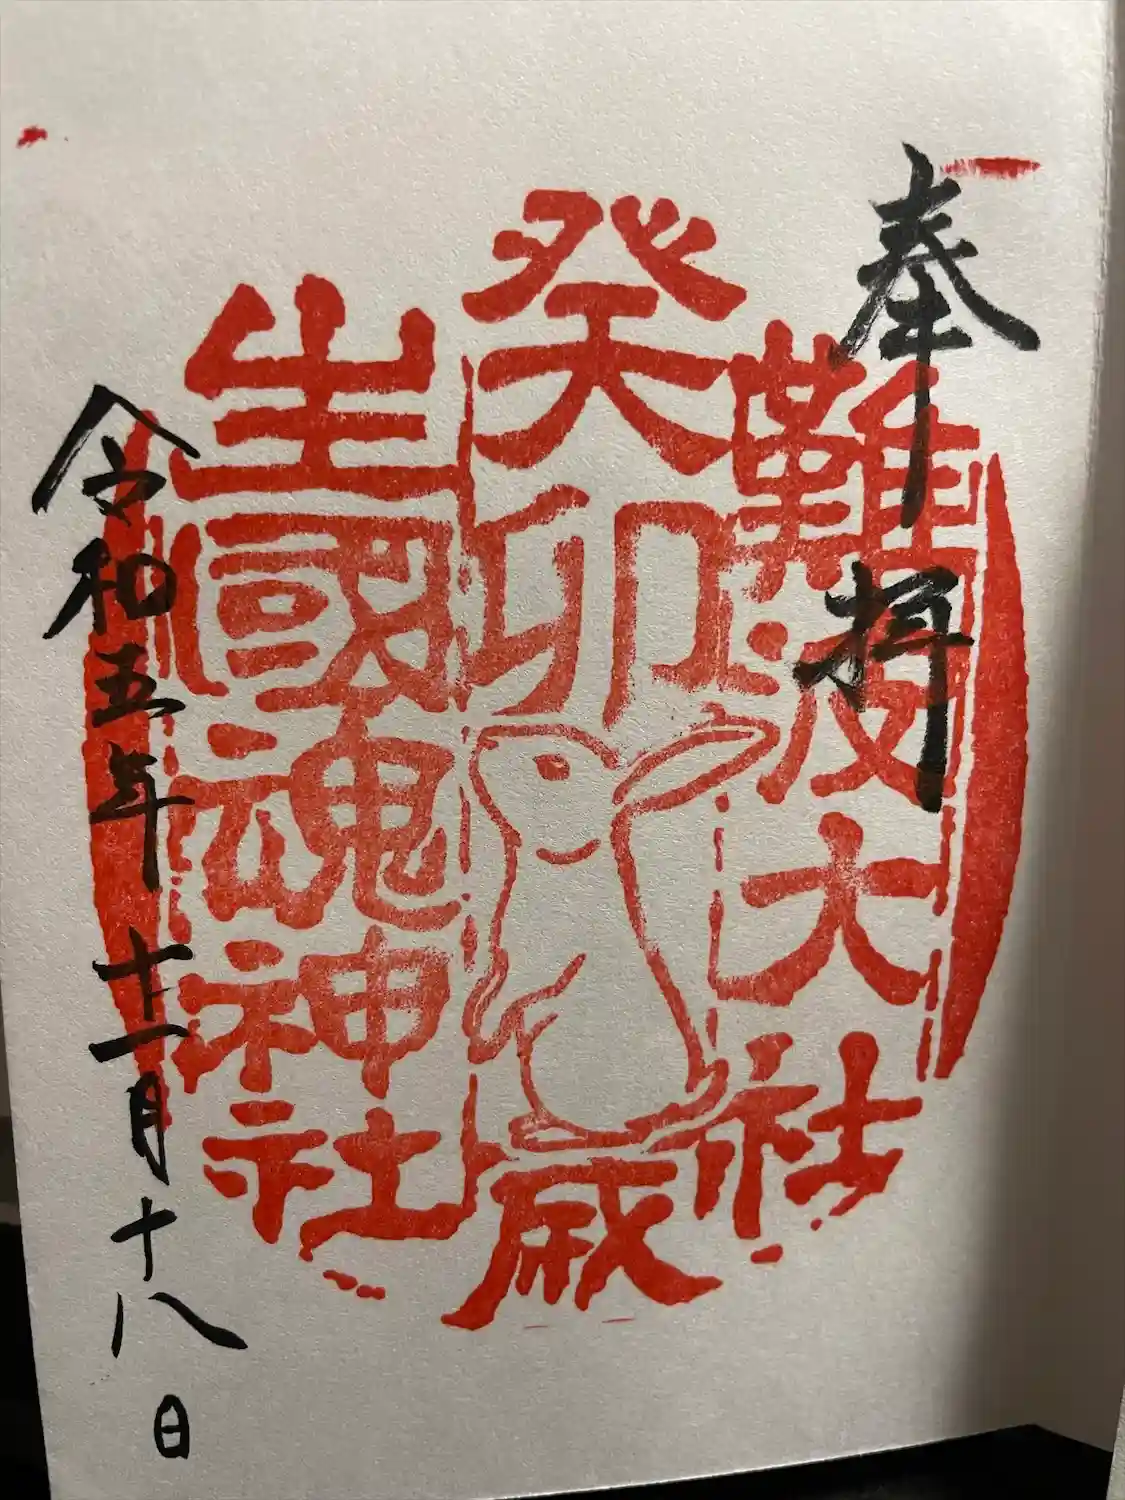 奉拝
難波大社
癸卯歳
生國魂神社
令和五年十一月十八日